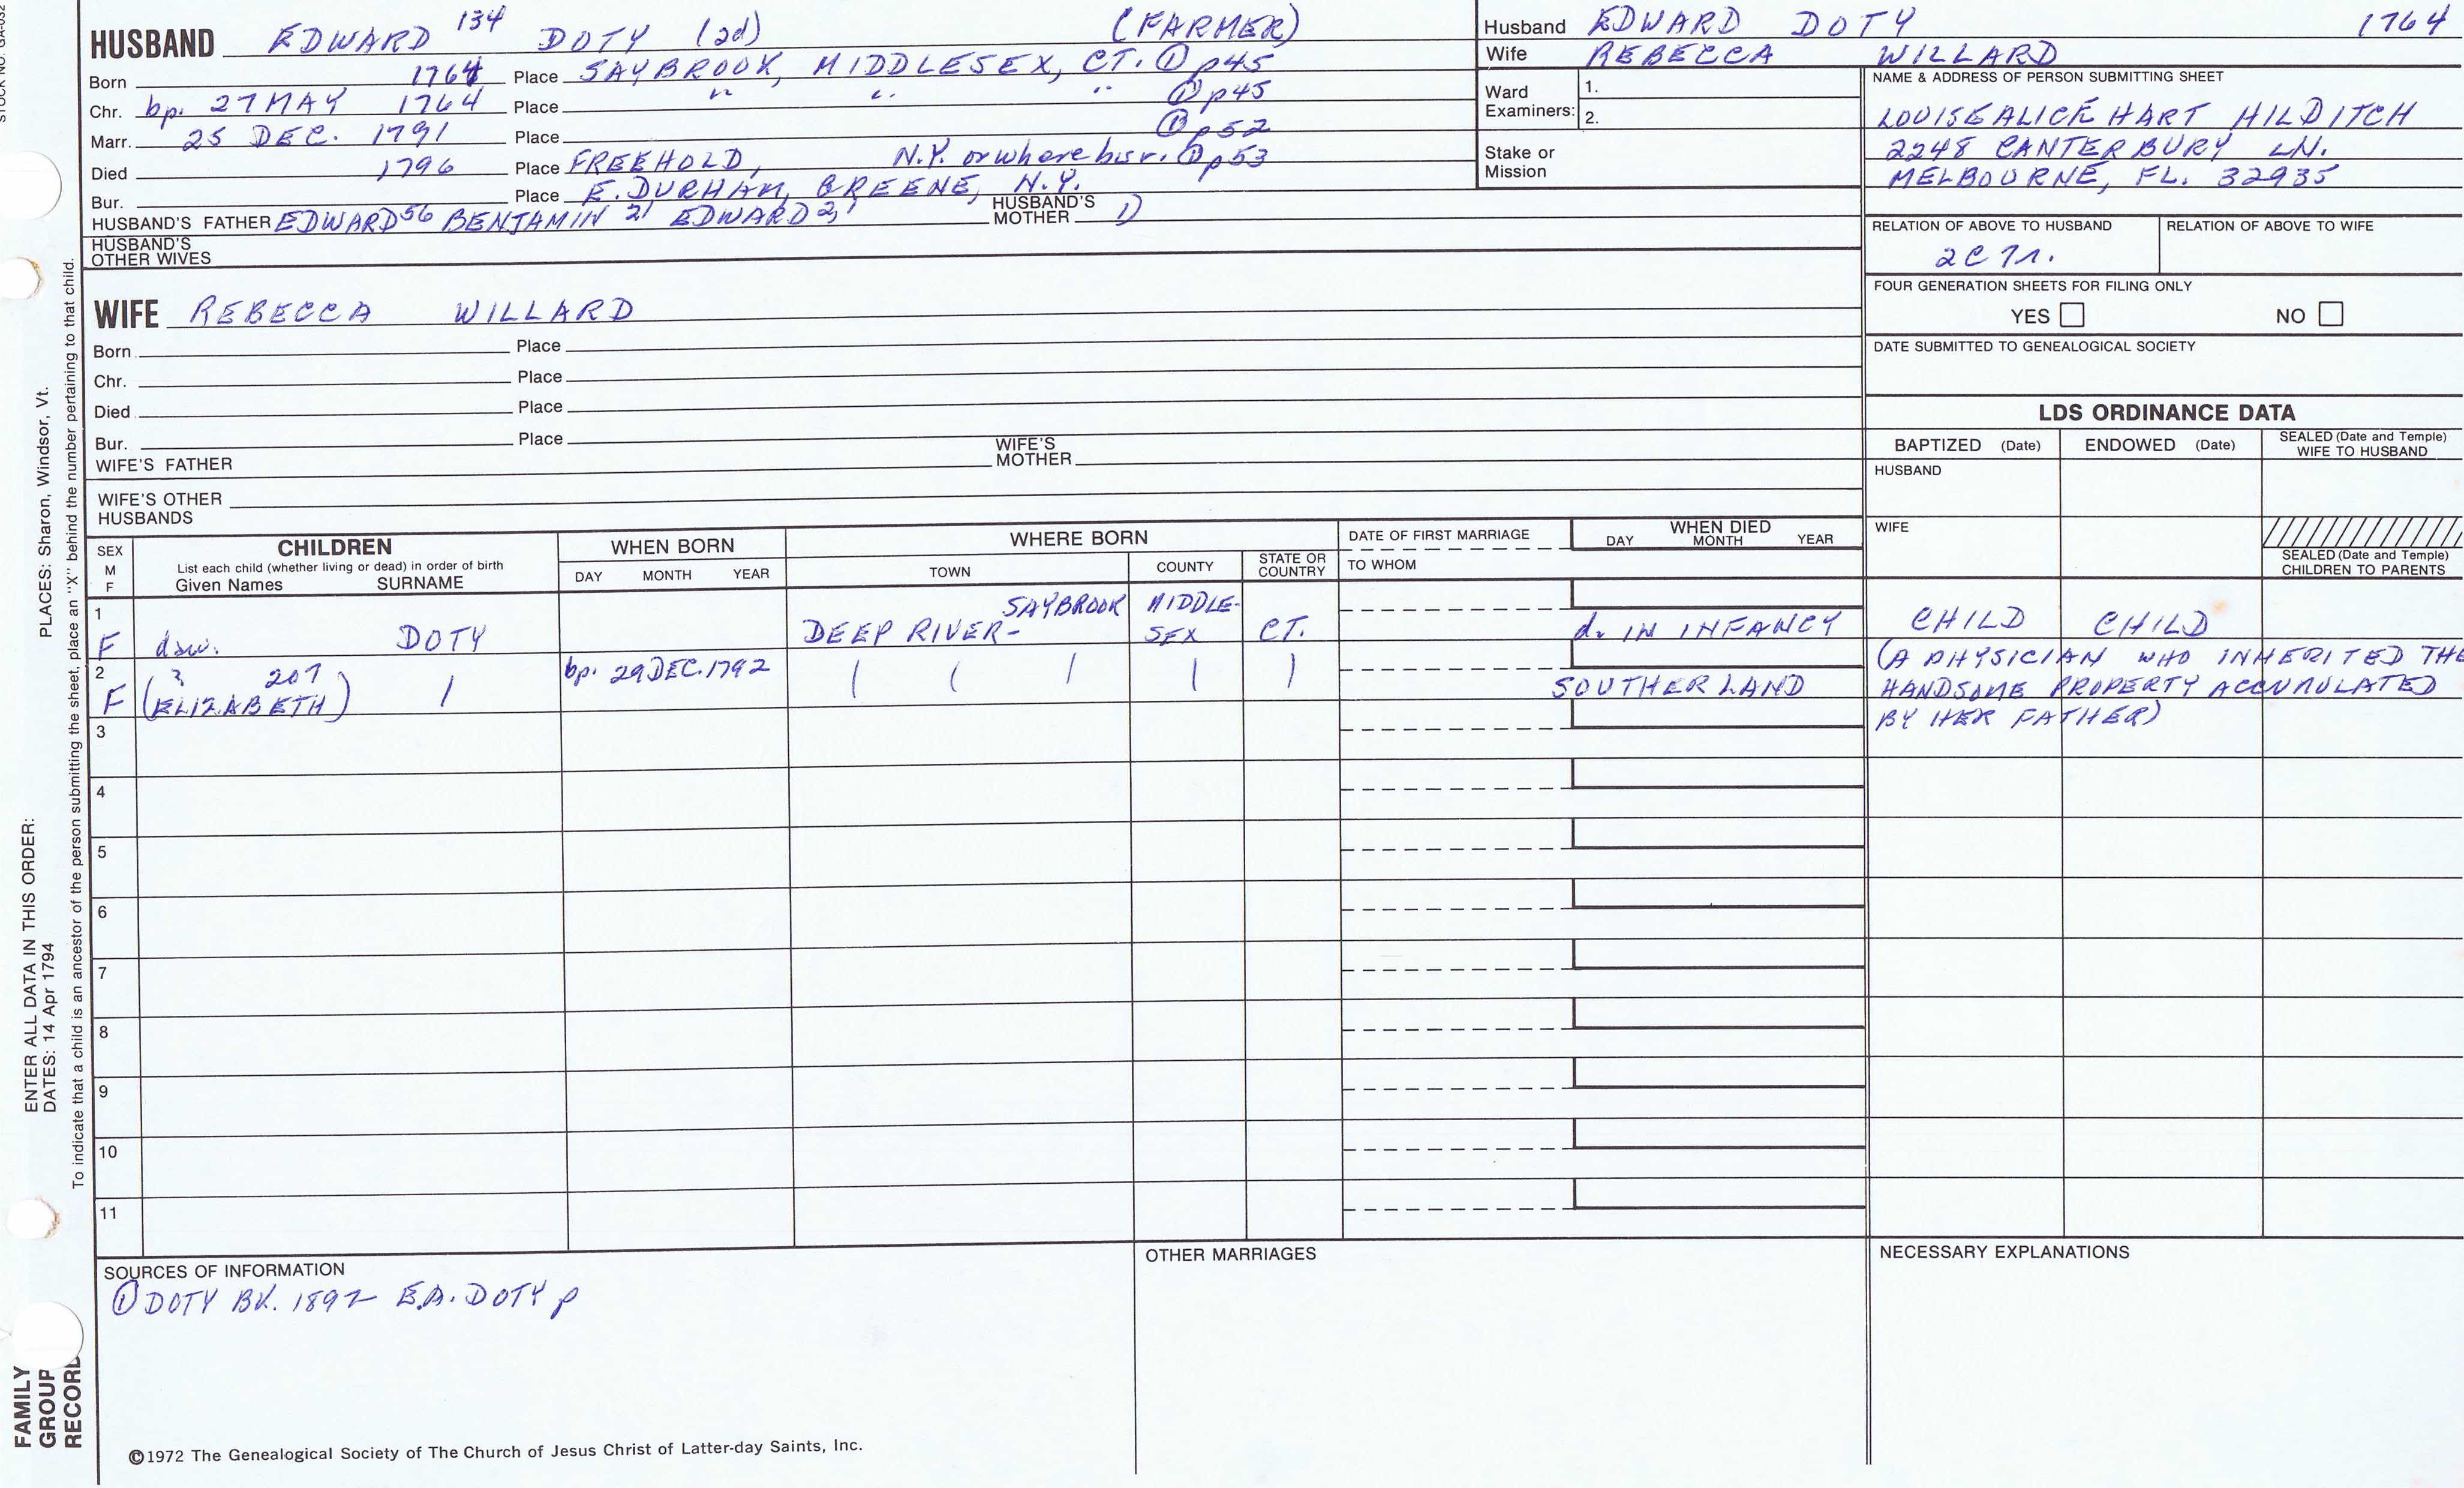 STOCK NO. GA-032
HUSBAND EDWARD 134 DOTY (2d) (FARMER)
Born 1764 Place SAYBROOK, MIDDLESEX, CT. ① p45
Chr. bp. 27 MAY 1764 Place " " " ① p45
Marr. 25 DEC. 1791 Place ① p52
Died 1796 Place FREEHOLD, N.Y. or where bur. ① p53
Bur. Place E. DURHAM, GREENE, N.Y.
HUSBAND'S FATHER EDWARD 56 BENJAMIN 21 EDWARD 2, 1 HUSBAND'S MOTHER 1)
HUSBAND'S OTHER WIVES
Husband EDWARD DOTY 1764
Wife REBECCA WILLARD
Ward Examiners: 1.
2.
Stake or Mission
NAME & ADDRESS OF PERSON SUBMITTING SHEET
LOUISE ALICE HART HILDITCH
2248 CANTERBURY LN.
MELBOURNE, FL. 32935
RELATION OF ABOVE TO HUSBAND RELATION OF ABOVE TO WIFE
2C 7r.
FOUR GENERATION SHEETS FOR FILING ONLY
YES NO
DATE SUBMITTED TO GENEALOGICAL SOCIETY
WIFE REBECCA WILLARD
Born Place
Chr. Place
Died Place
Bur. Place
WIFE'S FATHER WIFE'S MOTHER
WIFE'S OTHER HUSBANDS
LDS ORDINANCE DATA
BAPTIZED (Date) ENDOWED (Date) SEALED (Date and Temple) WIFE TO HUSBAND
HUSBAND
WIFE
SEALED (Date and Temple) CHILDREN TO PARENTS
SEX M F CHILDREN WHEN BORN WHERE BORN DATE OF FIRST MARRIAGE WHEN DIED
List each child (whether living or dead) in order of birth
Given Names SURNAME DAY MONTH YEAR TOWN COUNTY STATE OR COUNTRY TO WHOM DAY MONTH YEAR
1 F dau. DOTY DEEP RIVER- SAYBROOK MIDDLE-SEX CT. d. IN INFANCY CHILD CHILD
2 F ? 207 (ELIZABETH) bp. 29 DEC. 1792 SOUTHERLAND (A PHYSICIAN WHO INHERITED THE
HANDSOME PROPERTY ACCUMULATED
BY HER FATHER)
3
4
5
6
7
8
9
10
11
SOURCES OF INFORMATION
① DOTY BK. 1897 E.A. DOTY p
OTHER MARRIAGES
NECESSARY EXPLANATIONS
©1972 The Genealogical Society of The Church of Jesus Christ of Latter-day Saints, Inc.
FAMILY GROUP RECORD
ENTER ALL DATA IN THIS ORDER:
DATES: 14 Apr 1794
PLACES: Sharon, Windsor, Vt.
To indicate that a child is an ancestor of the person submitting the sheet, place an "X" behind the number pertaining to that child.